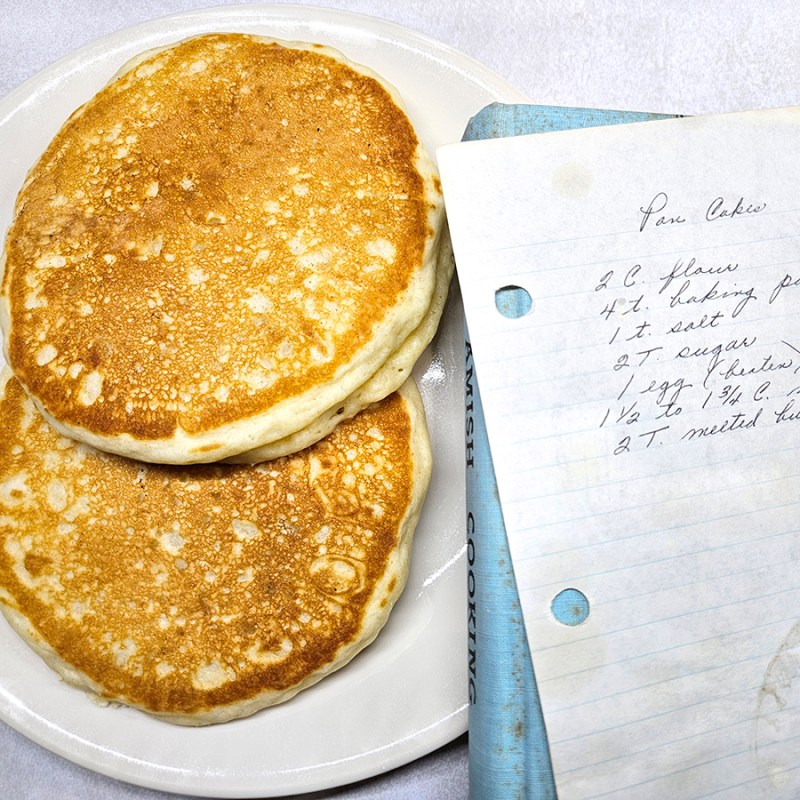 Pan Cakes
2 C. flour
4 t. baking
1 t. salt
2 T. sugar
1 egg (beaten)
1 1/2 to 1 3/4 C.
2 T. melted
AMISH COOKING